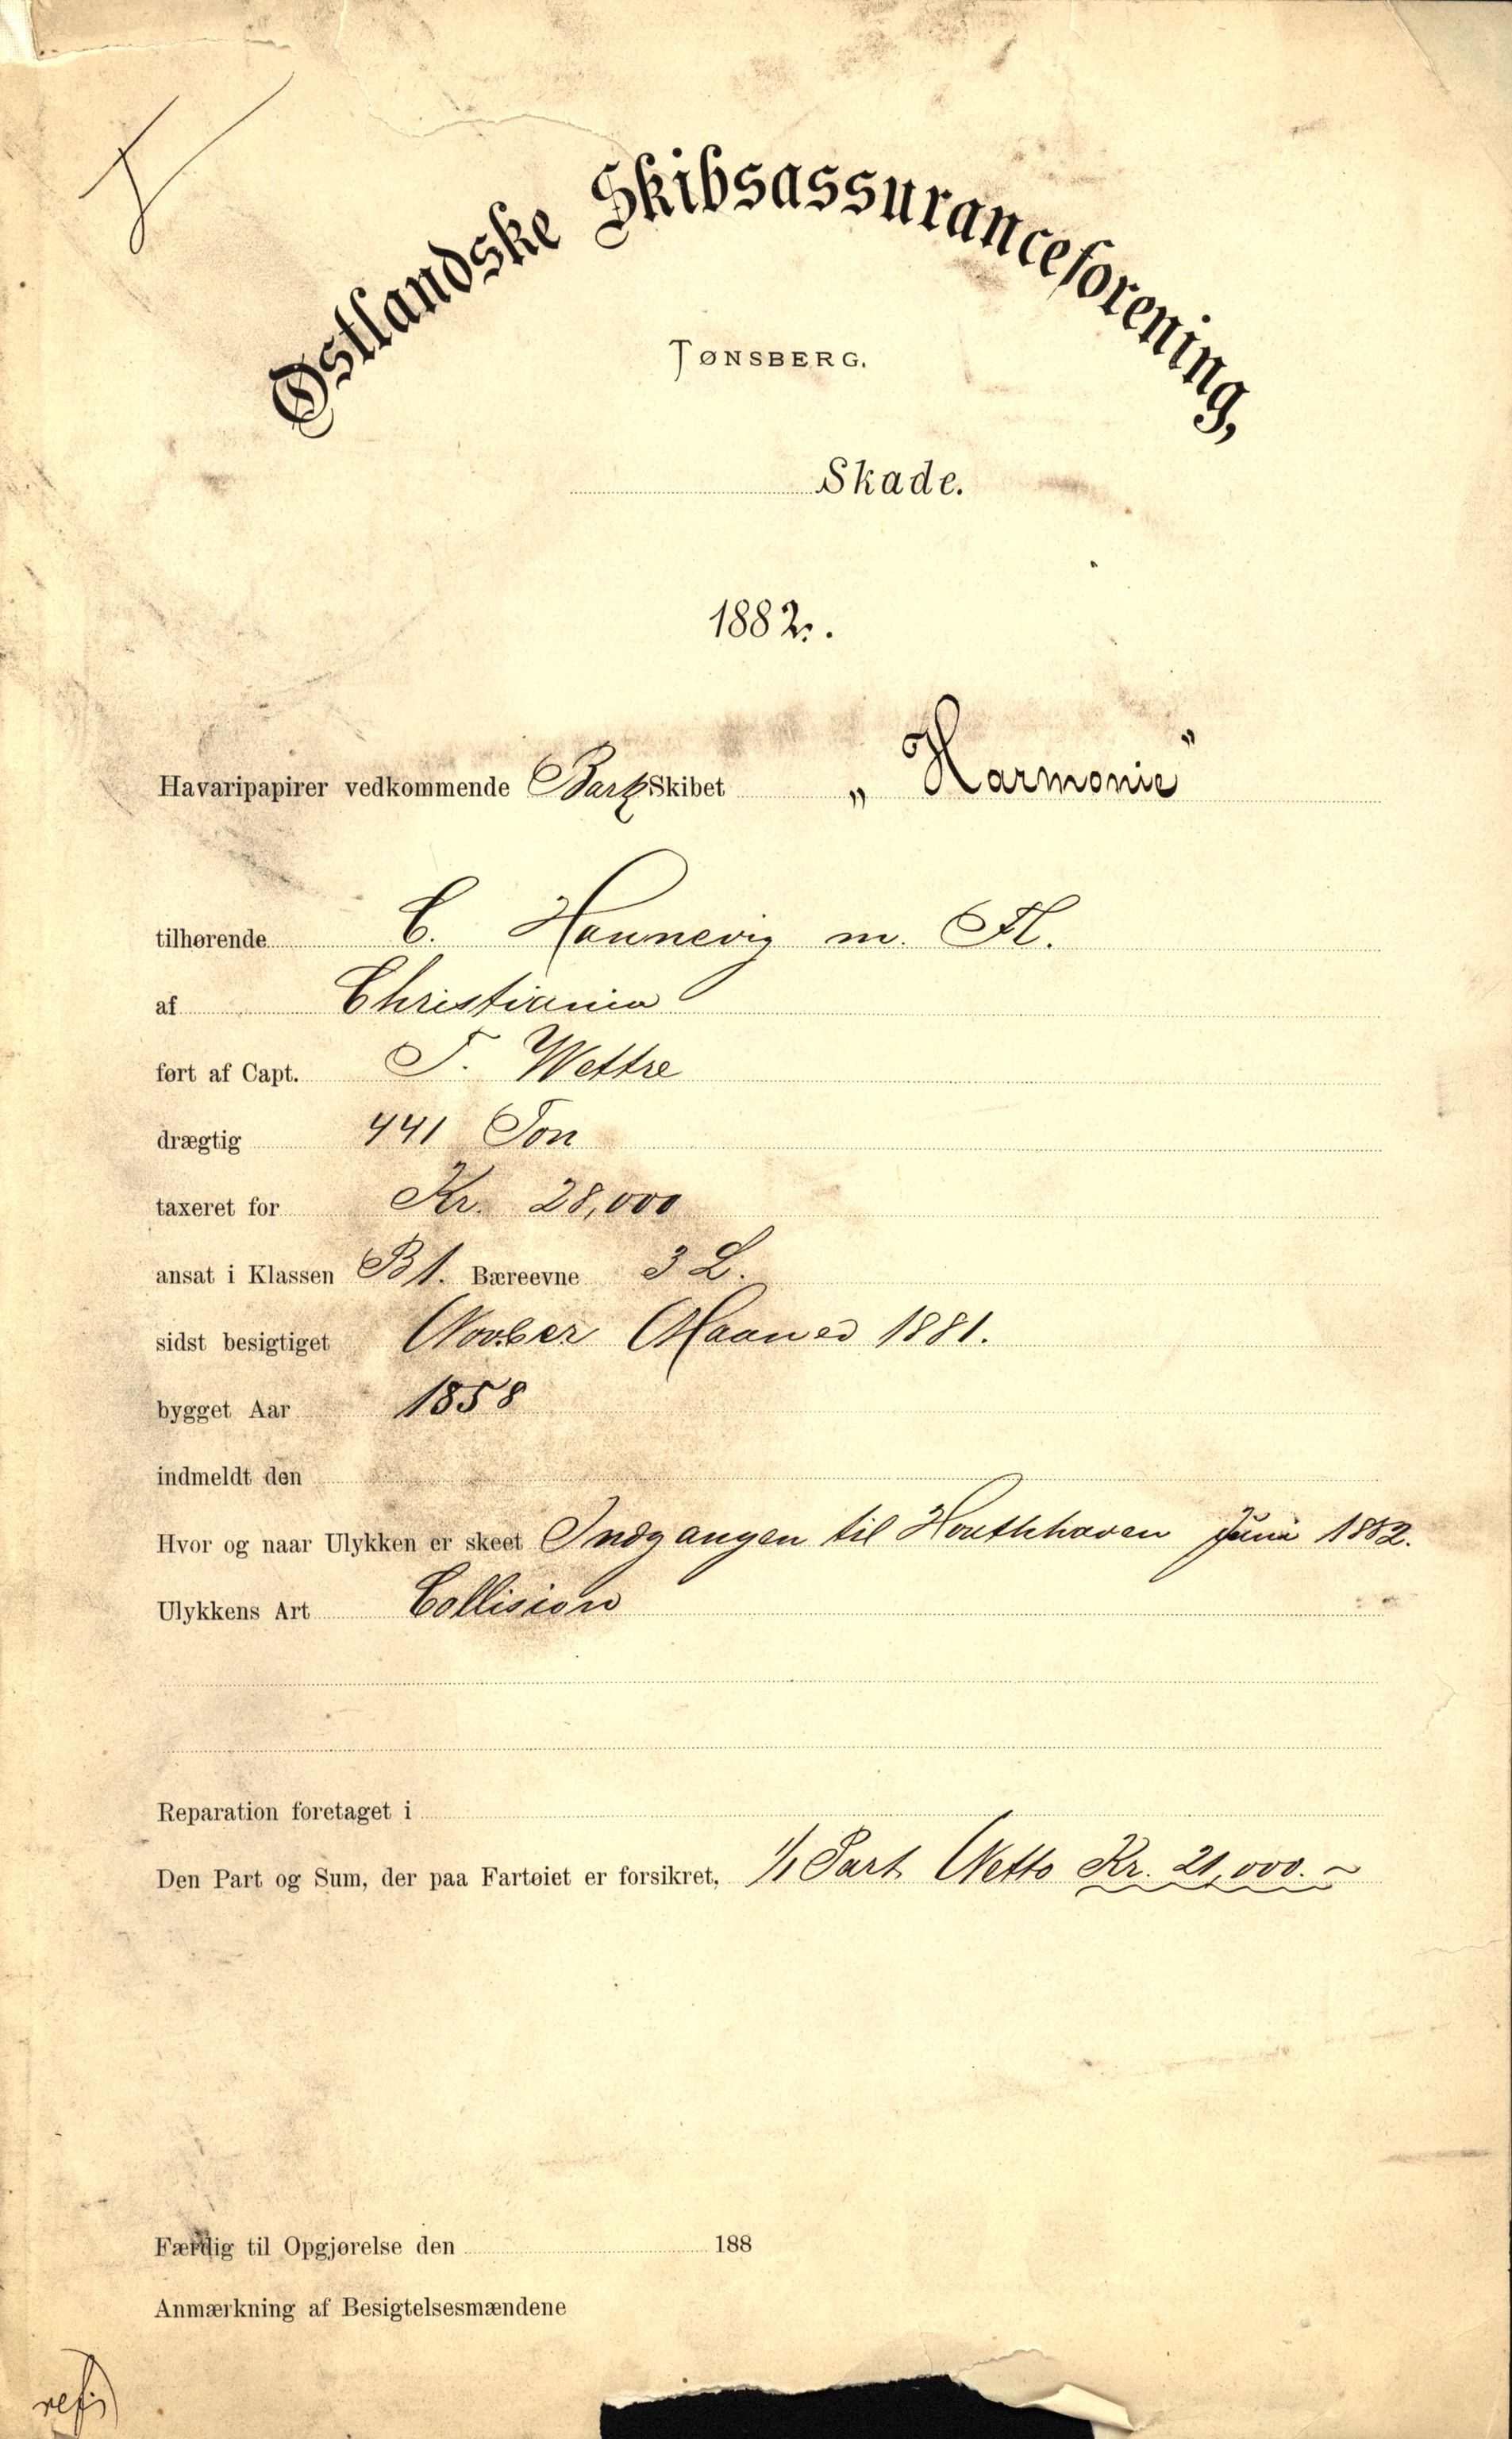 Østlandske Skibsassuranceforening,
TØNSBERG.
Skade.
1882.
Havaripapirer vedkommende Bark Skibet „Harmonie"
tilhørende C. Hannevig m. Fl.
af Christiania
ført af Capt. T. Wettre
drægtig 441 Ton
taxeret for Kr. 28,000
ansat i Klassen B 1. Bæreevne 3 L.
sidst besigtiget Novber Maaned 1881.
bygget Aar 1858
indmeldt den
Hvor og naar Ulykken er skeet Indgangen til Houthhaven Juni 1882.
Ulykkens Art Collision
Reparation foretaget i
Den Part og Sum, der paa Fartøiet er forsikret, 1/1 Part Netto Kr. 21,000.~
Færdig til Opgjørelse den 188
Anmærkning af Besigtelsesmændene